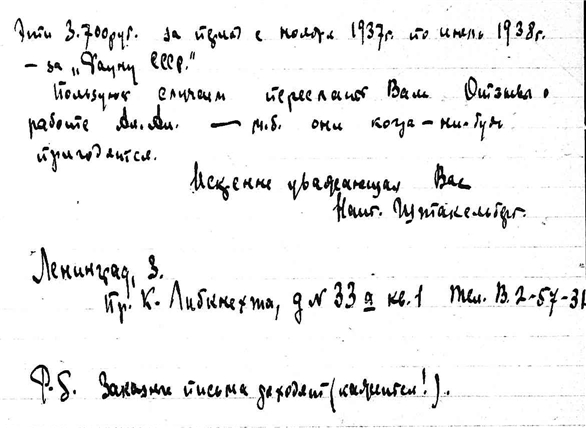 Эти 3.700 руб. за период с ноября 1937г. по июль 1938г.
— за „Фауну СССР."
Пользуюсь случаем переслать Вам Отзывы о
работе Ал. Ал. — м.б. они когда-ни-будь
пригодятся.
Искренне уважающая Вас
Нат. Штакельберг.
Ленинград, 3.
Пр. К. Либкнехта, д № 33а кв. 1 тел. В. 2-57-31
P.S. Заказные письма доходят (кажется!).